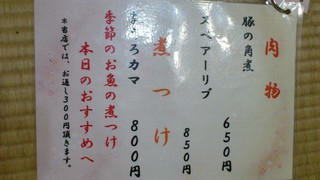 肉物
豚の角煮
650円
スペアーリブ
850円
煮つけ
まぐろカマ
800円
季節のお魚の煮つけ
本日のおすすめへ
※当店では、お通し300円頂きます。